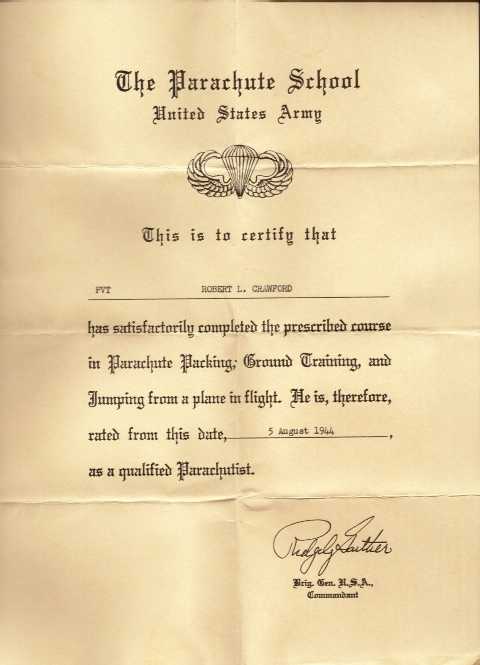 The Parachute School
United States Army
This is to certify that
PVT ROBERT L. CRAWFORD
has satisfactorily completed the prescribed course
in Parachute Packing, Ground Training, and
Jumping from a plane in flight. He is, therefore,
rated from this date, 5 August 1944,
as a qualified Parachutist.
Ridgely Gaither
Brig. Gen. U.S.A.,
Commandant